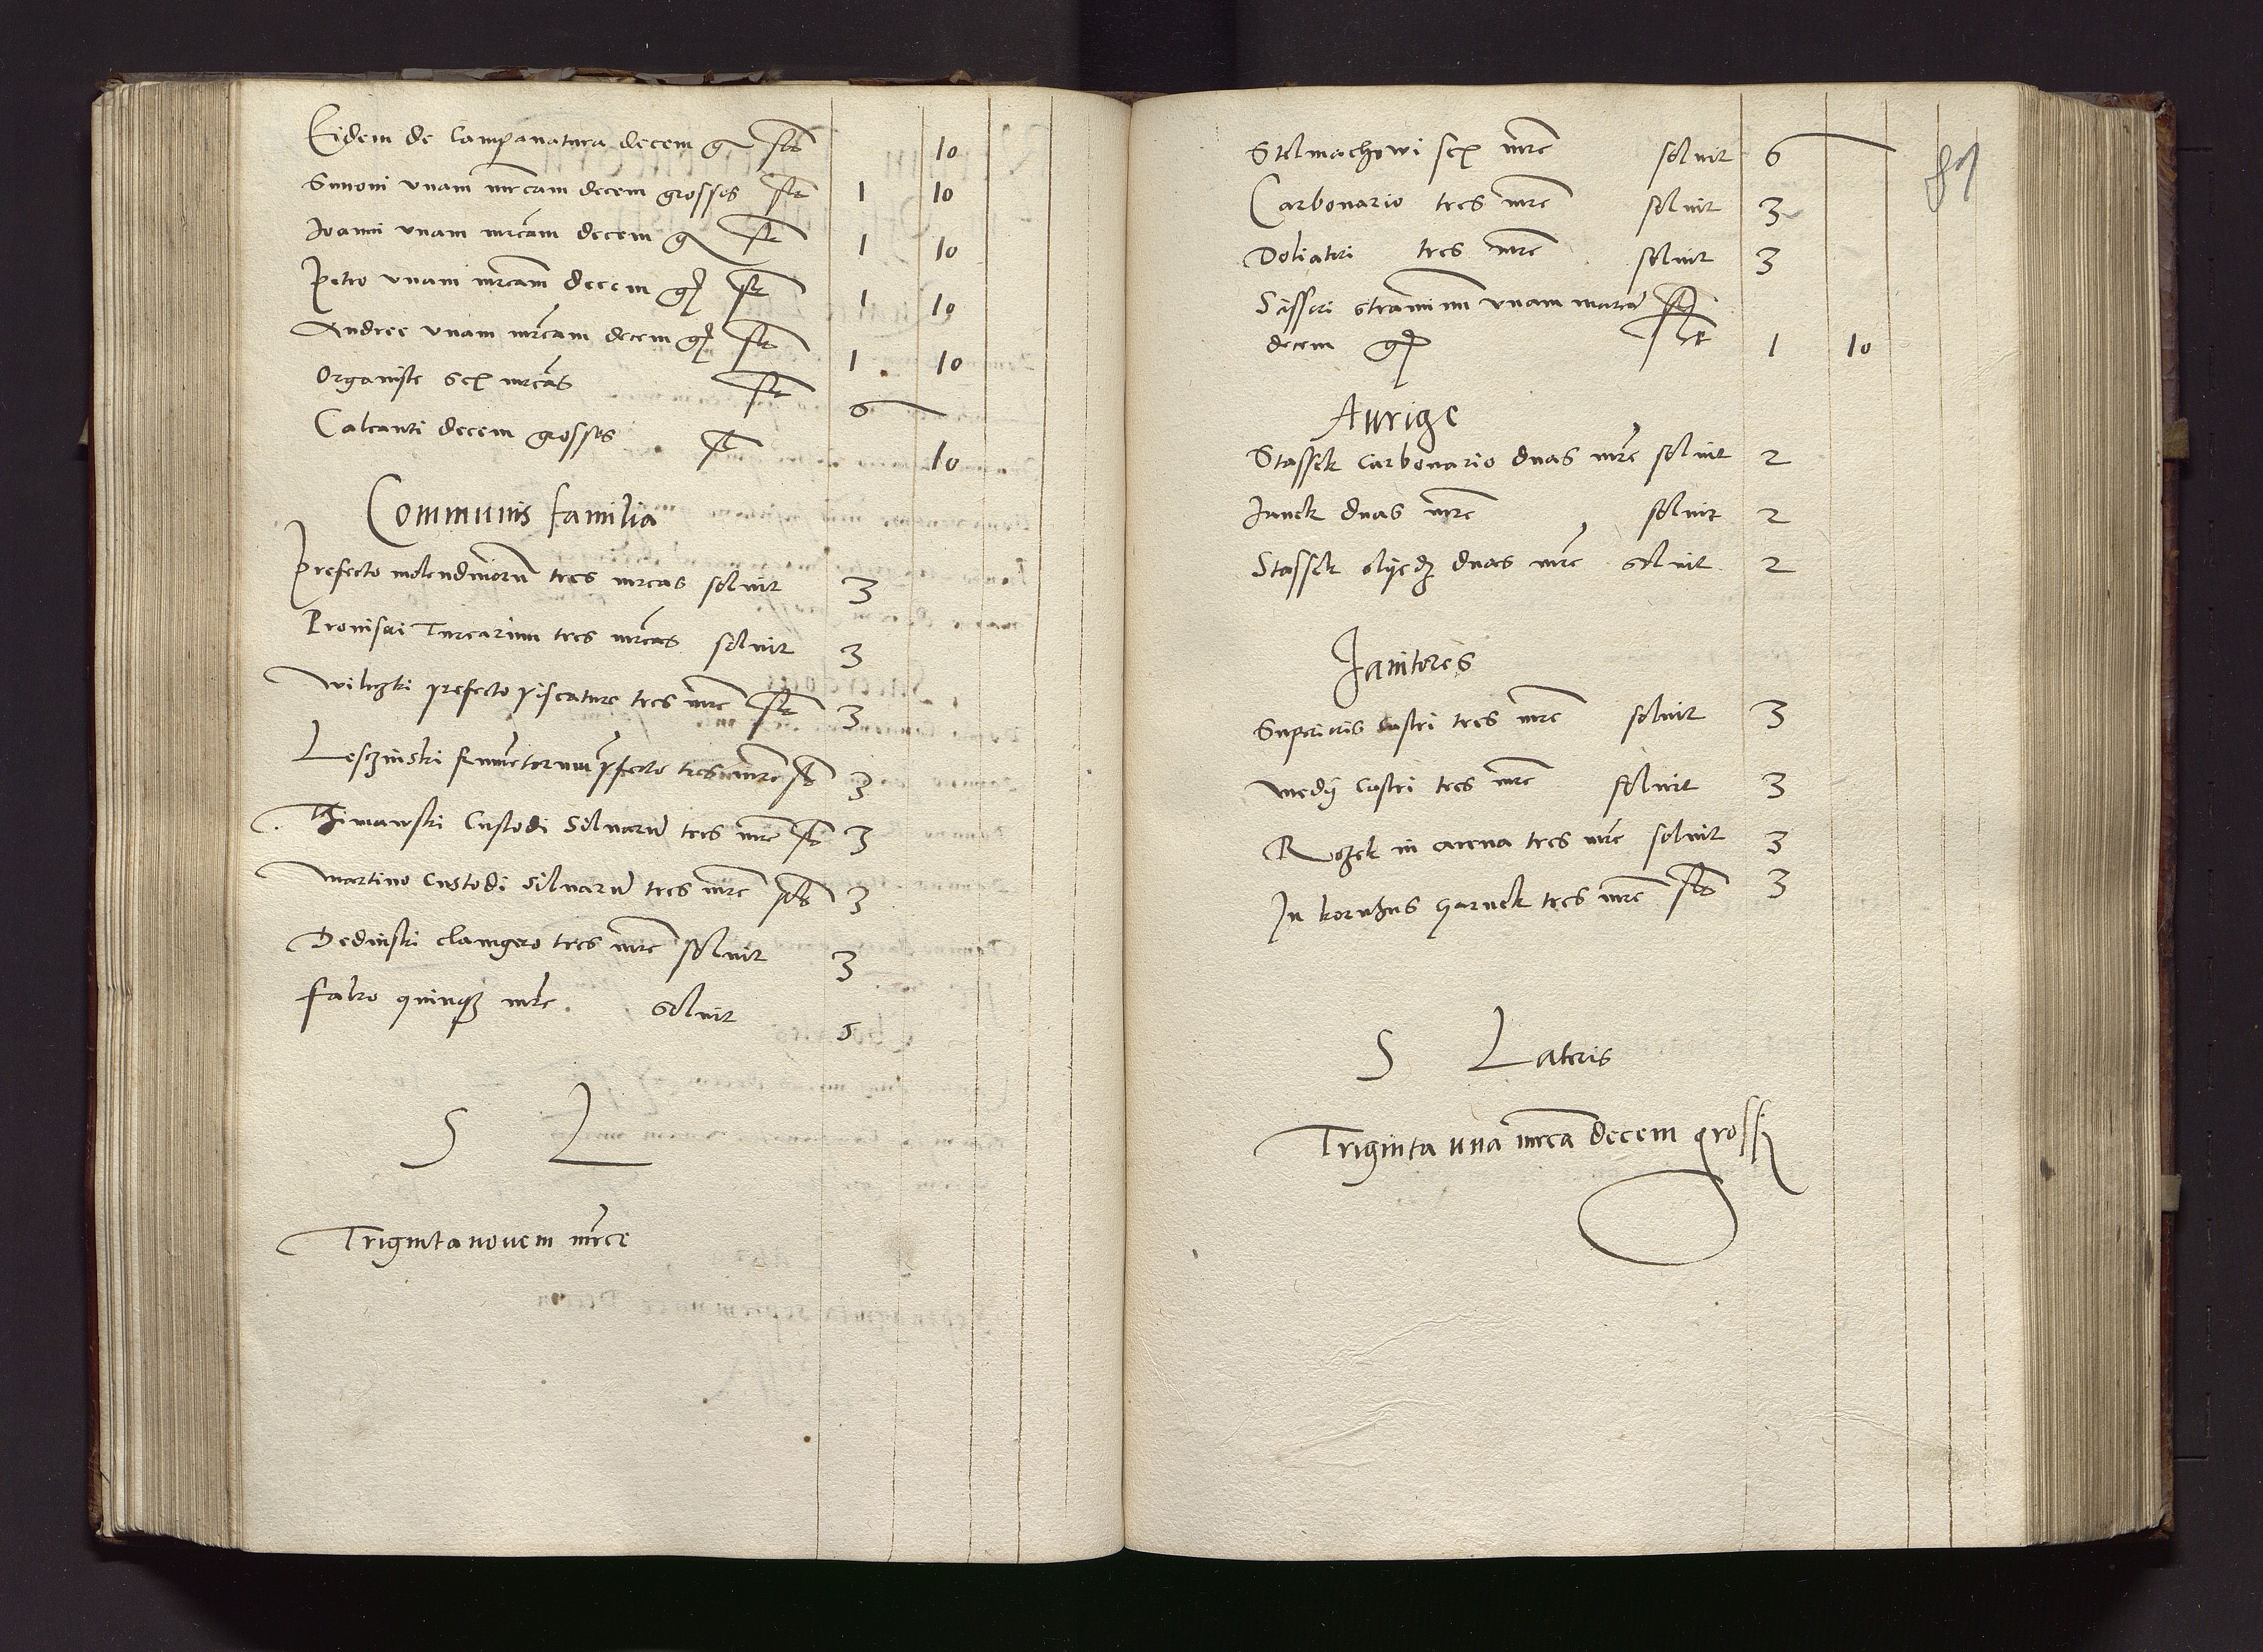 Eidem de Campanatura decem g solt 10
Simoni vnam mrcam decem grosses solt 1 10
Ioanni vnam mrcam decem g solt 1 10
Petro vnam mrcam decem g solt 1 10
Andree vnam mrcam decem g solt 1 10
Organiste sex mrcas solt 6
Calcanti decem grosses solt 10
Communis familia
Prefecto molendinorum tres mrcas soluit 3
Prouisori Turcarum tres mrcas soluit 3
prefecto piscature tres mrc solt 3
Leszinski frumentorum pfecto tres mrc solt 3
Thimawski Custodi Siluarum tres mrc solt 3
Martino Custodi siluarum tres mrc solt 3
Dedinski clauigero tres mrc soluit 3
Fabro quinqz mrc. soluit 5
S L
Triginta nouem mrce
87
Stelmachowi sex mrc soluit 6
Carbonario tres mrc soluit 3
Doliatori tres mrc soluit 3
Scissori straminum vnam marcam
decem g solt 1 10
Aurige
Stassek carbonario duas mrc soluit 2
Janek duas mrc soluit 2
Stassek duas mrc soluit 2
Janitores
Superioris castri tres mrc soluit 3
Medij castri tres mrc soluit 3
Rozek in arena tres mrc soluit 3
In kornhus Harnek tres mrc solt 3
S Lateris
Triginta una mrca decem grossi